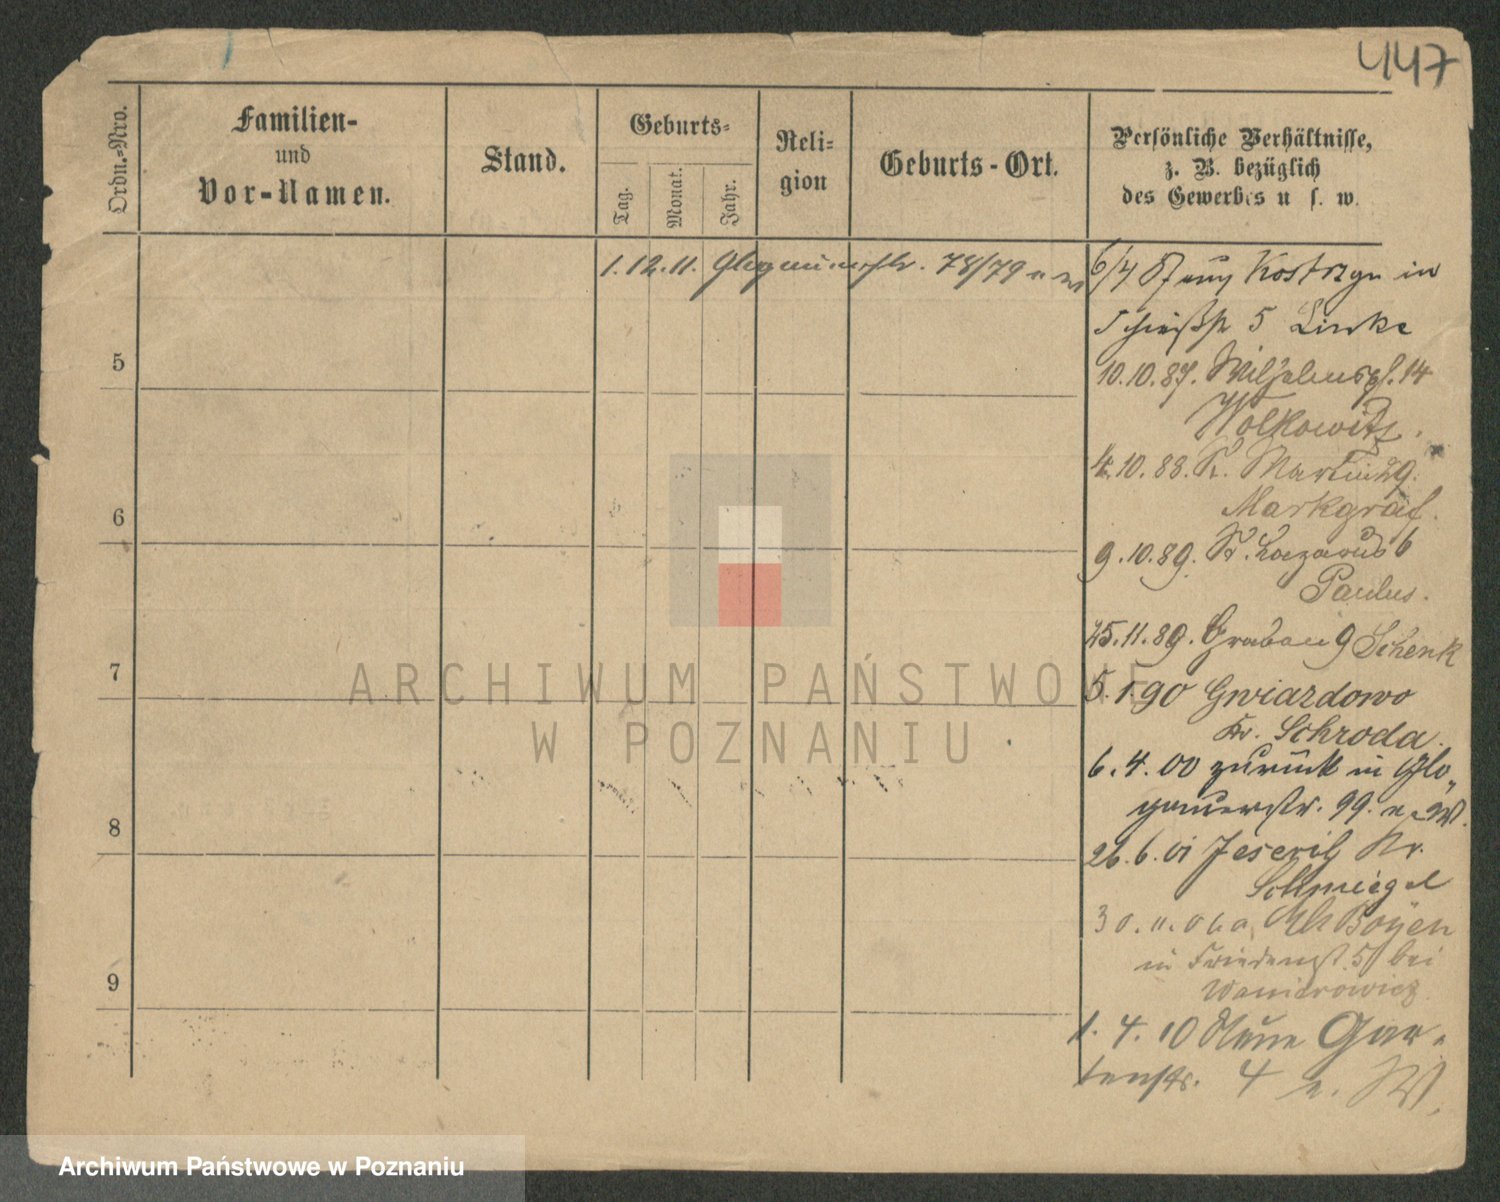 447
Ordn.-Nro.
Familien-
und
Vor-Namen.
Stand.
Geburts-
Tag.
Monat.
Jahr.
Reli-
gion
Geburts-Ort.
Persönliche Verhältnisse,
z. B. bezüglich
des Gewerbes u s. w.
1. 12. 11. Glogauerstr. 78/79 n W
6/4 aus Kostrzyn in
Schießstr 5 Linke
10.10.87. Wilhelmspl. 14
Wolkowitz.
4.10.88. St. Martin 29.
Markgraf.
9.10.89. St. Lazarus 6
Paulus.
25.11.89. Graben 9 Schenk
5. 5. 90 Gwiazdowo
Kr. Schroda.
6. 4. 00 zurück in Glo-
gauerstr. 99. n. W.
26. 6. 01 Jeseritz Kr.
Schmiegel
30. 11. 06 a. Boyen
in Friedenst. 5 bei
1. 4. 10 Neue Gar-
tenstr. 4 n. W.
5
6
7
8
9
ARCHIWUM PAŃSTWOWE
W POZNANIU
Archiwum Państwowe w Poznaniu